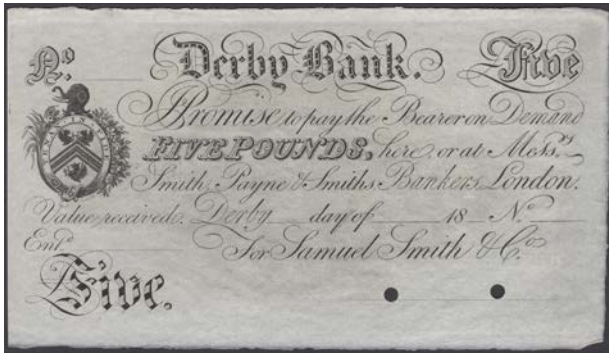 No. Derby Bank. Five
I Promise to pay the Bearer on Demand
FIVE POUNDS, here, or at Messrs.
Smith, Payne & Smiths Bankers London.
Value received. Derby day of 18 N.
Entd.
For Samuel Smith & Cos.
Five.
TENAX IN FIDE